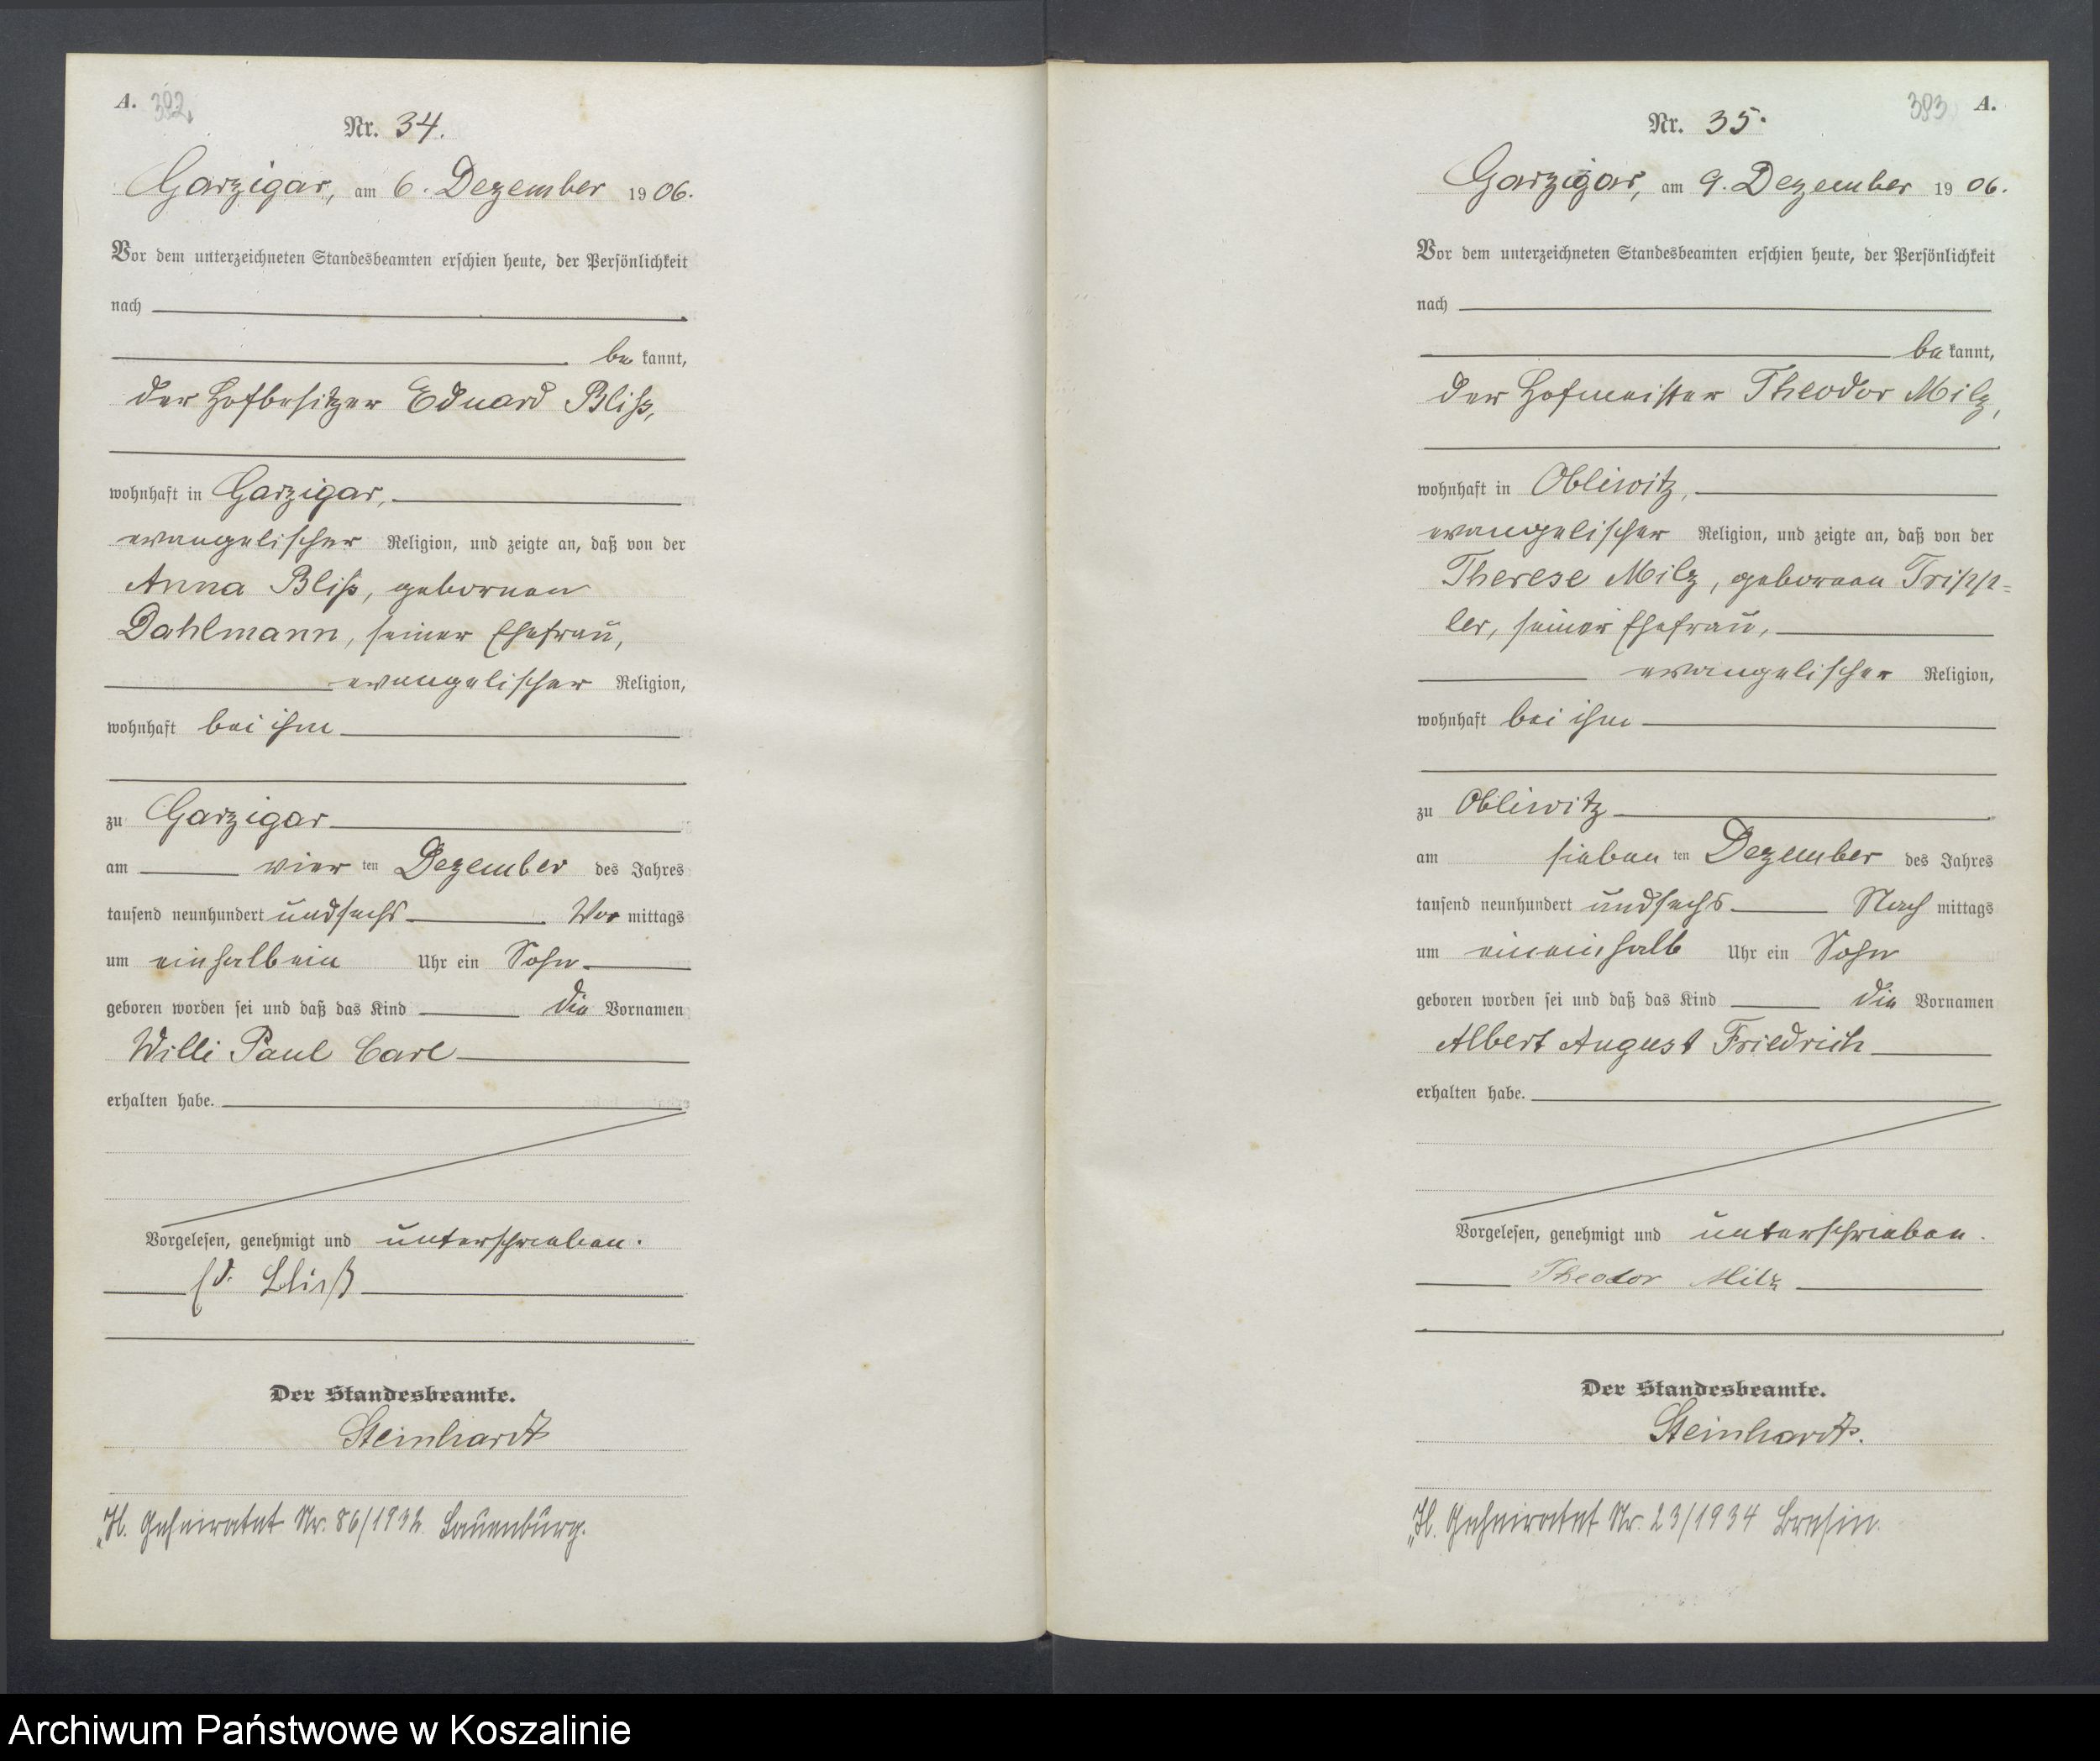 A. 392
Nr. 34.
Garzigar, am 6. Dezember 1906.
Vor dem unterzeichneten Standesbeamten erschien heute, der Persönlichkeit
nach
be kannt,
der Hofbesitzer Eduard Bliß,
wohnhaft in Garzigar,
evangelischer Religion, und zeigte an, daß von der
Anna Bliß, geborenen
Dahlmann, seiner Ehefrau,
evangelischer Religion,
wohnhaft bei ihm
zu Garzigar
am vier ten Dezember des Jahres
tausend neunhundert und sechs Vor mittags
um einhalb ein Uhr ein Sohn
geboren worden sei und daß das Kind die Vornamen
Willi Paul Carl
erhalten habe.
Vorgelesen, genehmigt und unterschrieben.
Ed. Bliß
Der Standesbeamte.
Steinhardt
H. Geheiratet Nr. 86/1932 Lauenburg.
393 A.
Nr. 35.
Garzigar, am 9. Dezember 1906.
Vor dem unterzeichneten Standesbeamten erschien heute, der Persönlichkeit
nach
be kannt,
der Hofmeister Theodor Milz,
wohnhaft in Obliwitz,
evangelischer Religion, und zeigte an, daß von der
Therese Milz, geborenen Tripp=
ler, seiner Ehefrau,
evangelischer Religion,
wohnhaft bei ihm
zu Obliwitz
am sieben ten Dezember des Jahres
tausend neunhundert und sechs Nach mittags
um eineinhalb Uhr ein Sohn
geboren worden sei und daß das Kind die Vornamen
Albert August Friedrich
erhalten habe.
Vorgelesen, genehmigt und unterschrieben.
Theodor Milz
Der Standesbeamte.
Steinhardt.
H. Geheiratet Nr. 23/1934 Bresin.
Archiwum Państwowe w Koszalinie